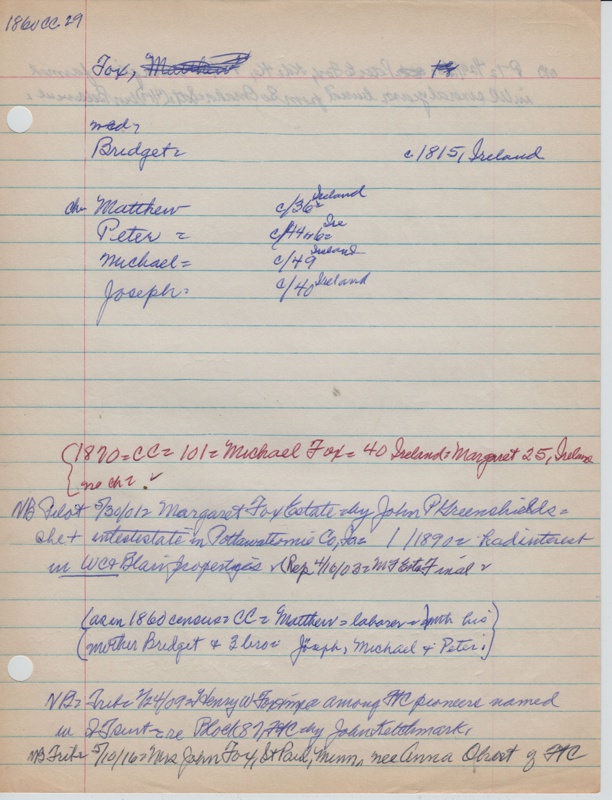 1860 CC 29
Fox, Matthew
md,
Bridget = c/1815, Ireland
ch= Matthew c/36 = Ireland
Peter = c/44 or 6 = Ire
Michael = c/49 Ireland
Joseph = c/40 Ireland
1870 = CC = 101 = Michael Fox = 40 Ireland = Margaret 25, Ireland
no ch = .
NB Pilot 5/30/01 = Margaret Fox Estate = by John P Greenshields =
she + intestestate in Pottawattomie Co, Ia = 1/1890 = had interest
in WC & Blair Propertys (Rep 4/16/03 = M F Est = Final
(as in 1860 census = CC = Matthew = laborer = with his
(mother Bridget & 3 bro = Joseph, Michael & Peter.)
NB = Trib = 7/24/09 = Henry W Fox among FtC pioneers named
in D Court = re Block 87, FtC by John Kettlmark,
NB Trib = 5/10/16 = Mrs John Fox, St Paul, Minn, nee Anna Obrest of FtC